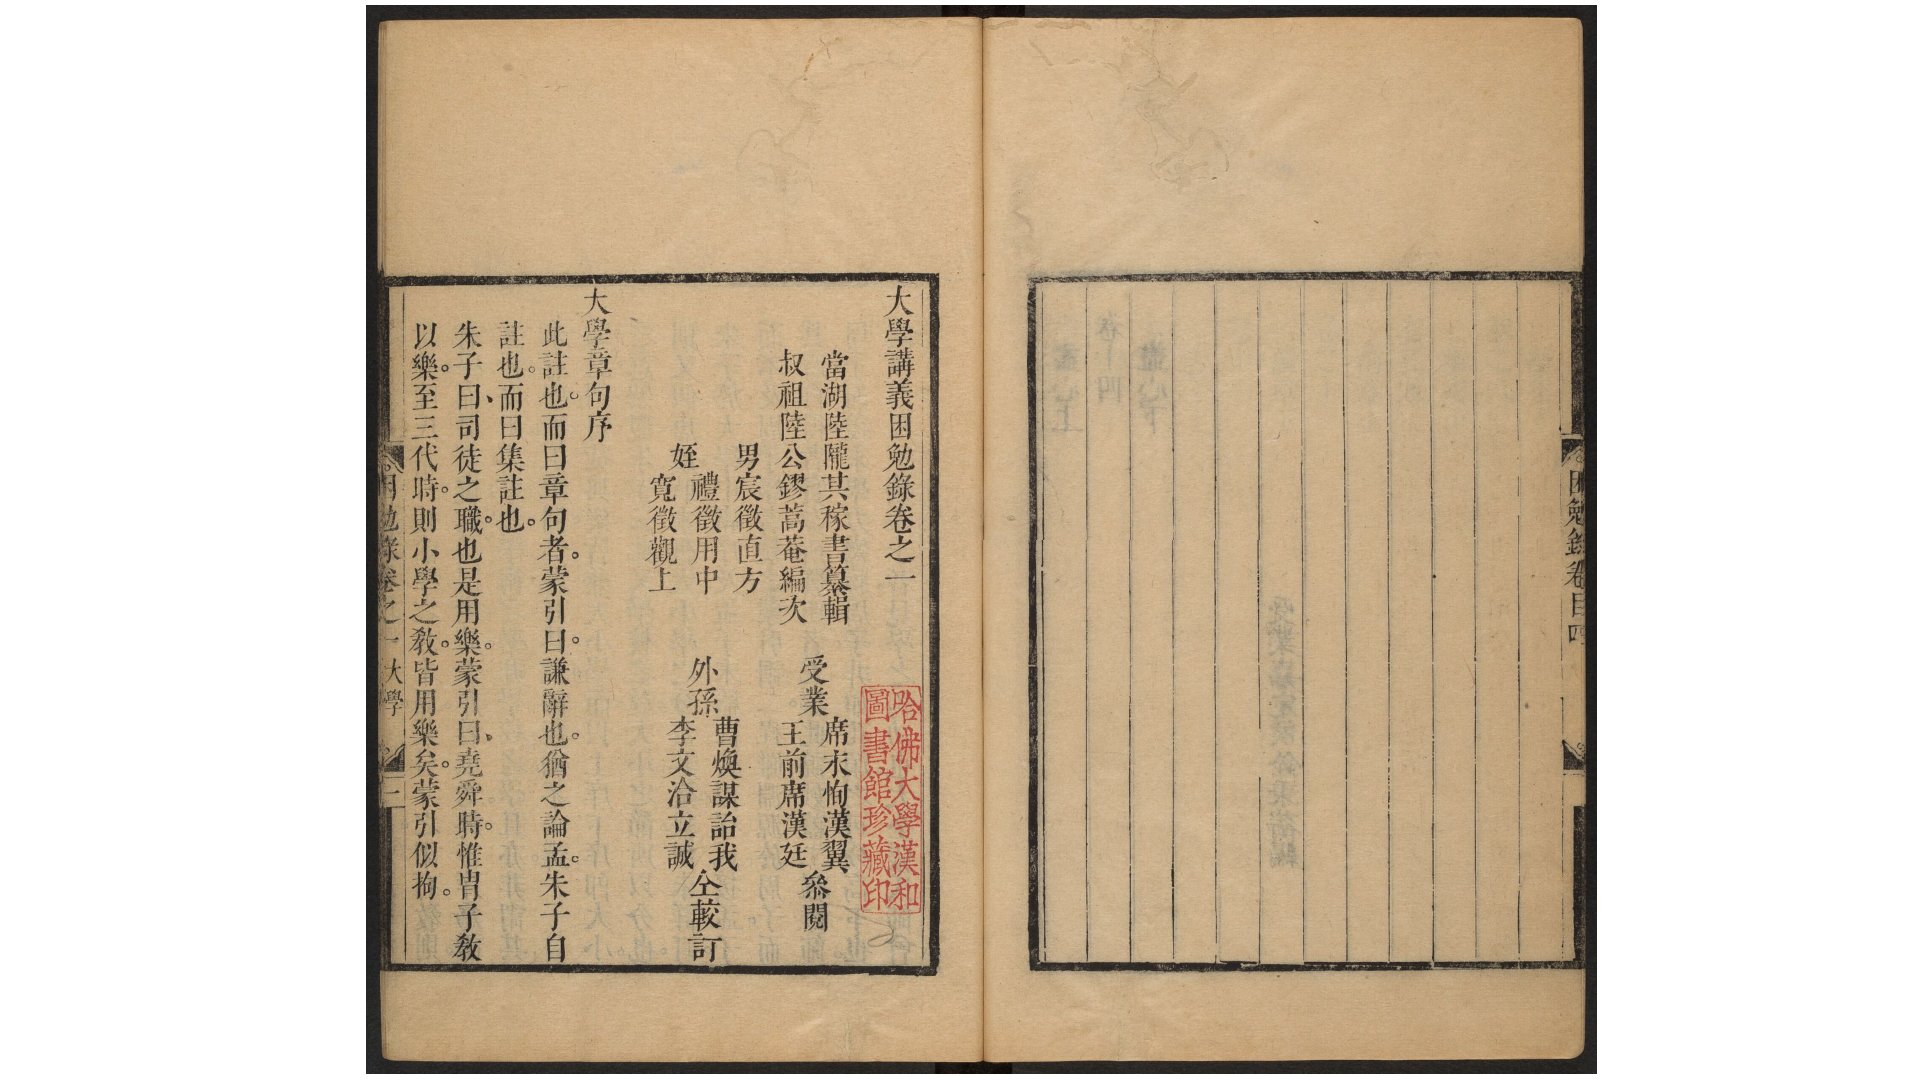 困勉錄卷目四
大學講義困勉錄卷之一
當湖陸隴其稼書纂輯
叔祖陸公鏐蒿菴編次
男宸徵直方
姪
禮徵用中
寬徵觀上
受業
席永恂漢翼
王前席漢廷
叅閱
外孫
曹煥謀詒我
李文洽立誠
仝較訂
哈佛大學漢和
圖書館珍藏印
大學章句序
此註也。而曰章句者。蒙引曰。謙辭也。猶之論孟。朱子自
註也。而曰集註也。
朱子曰、司徒之職。也是用樂。蒙引曰、堯舜時。惟胄子敎
以樂。至三代時。則小學之敎。皆用樂矣。蒙引似拘。
困勉錄卷之一 大學 一